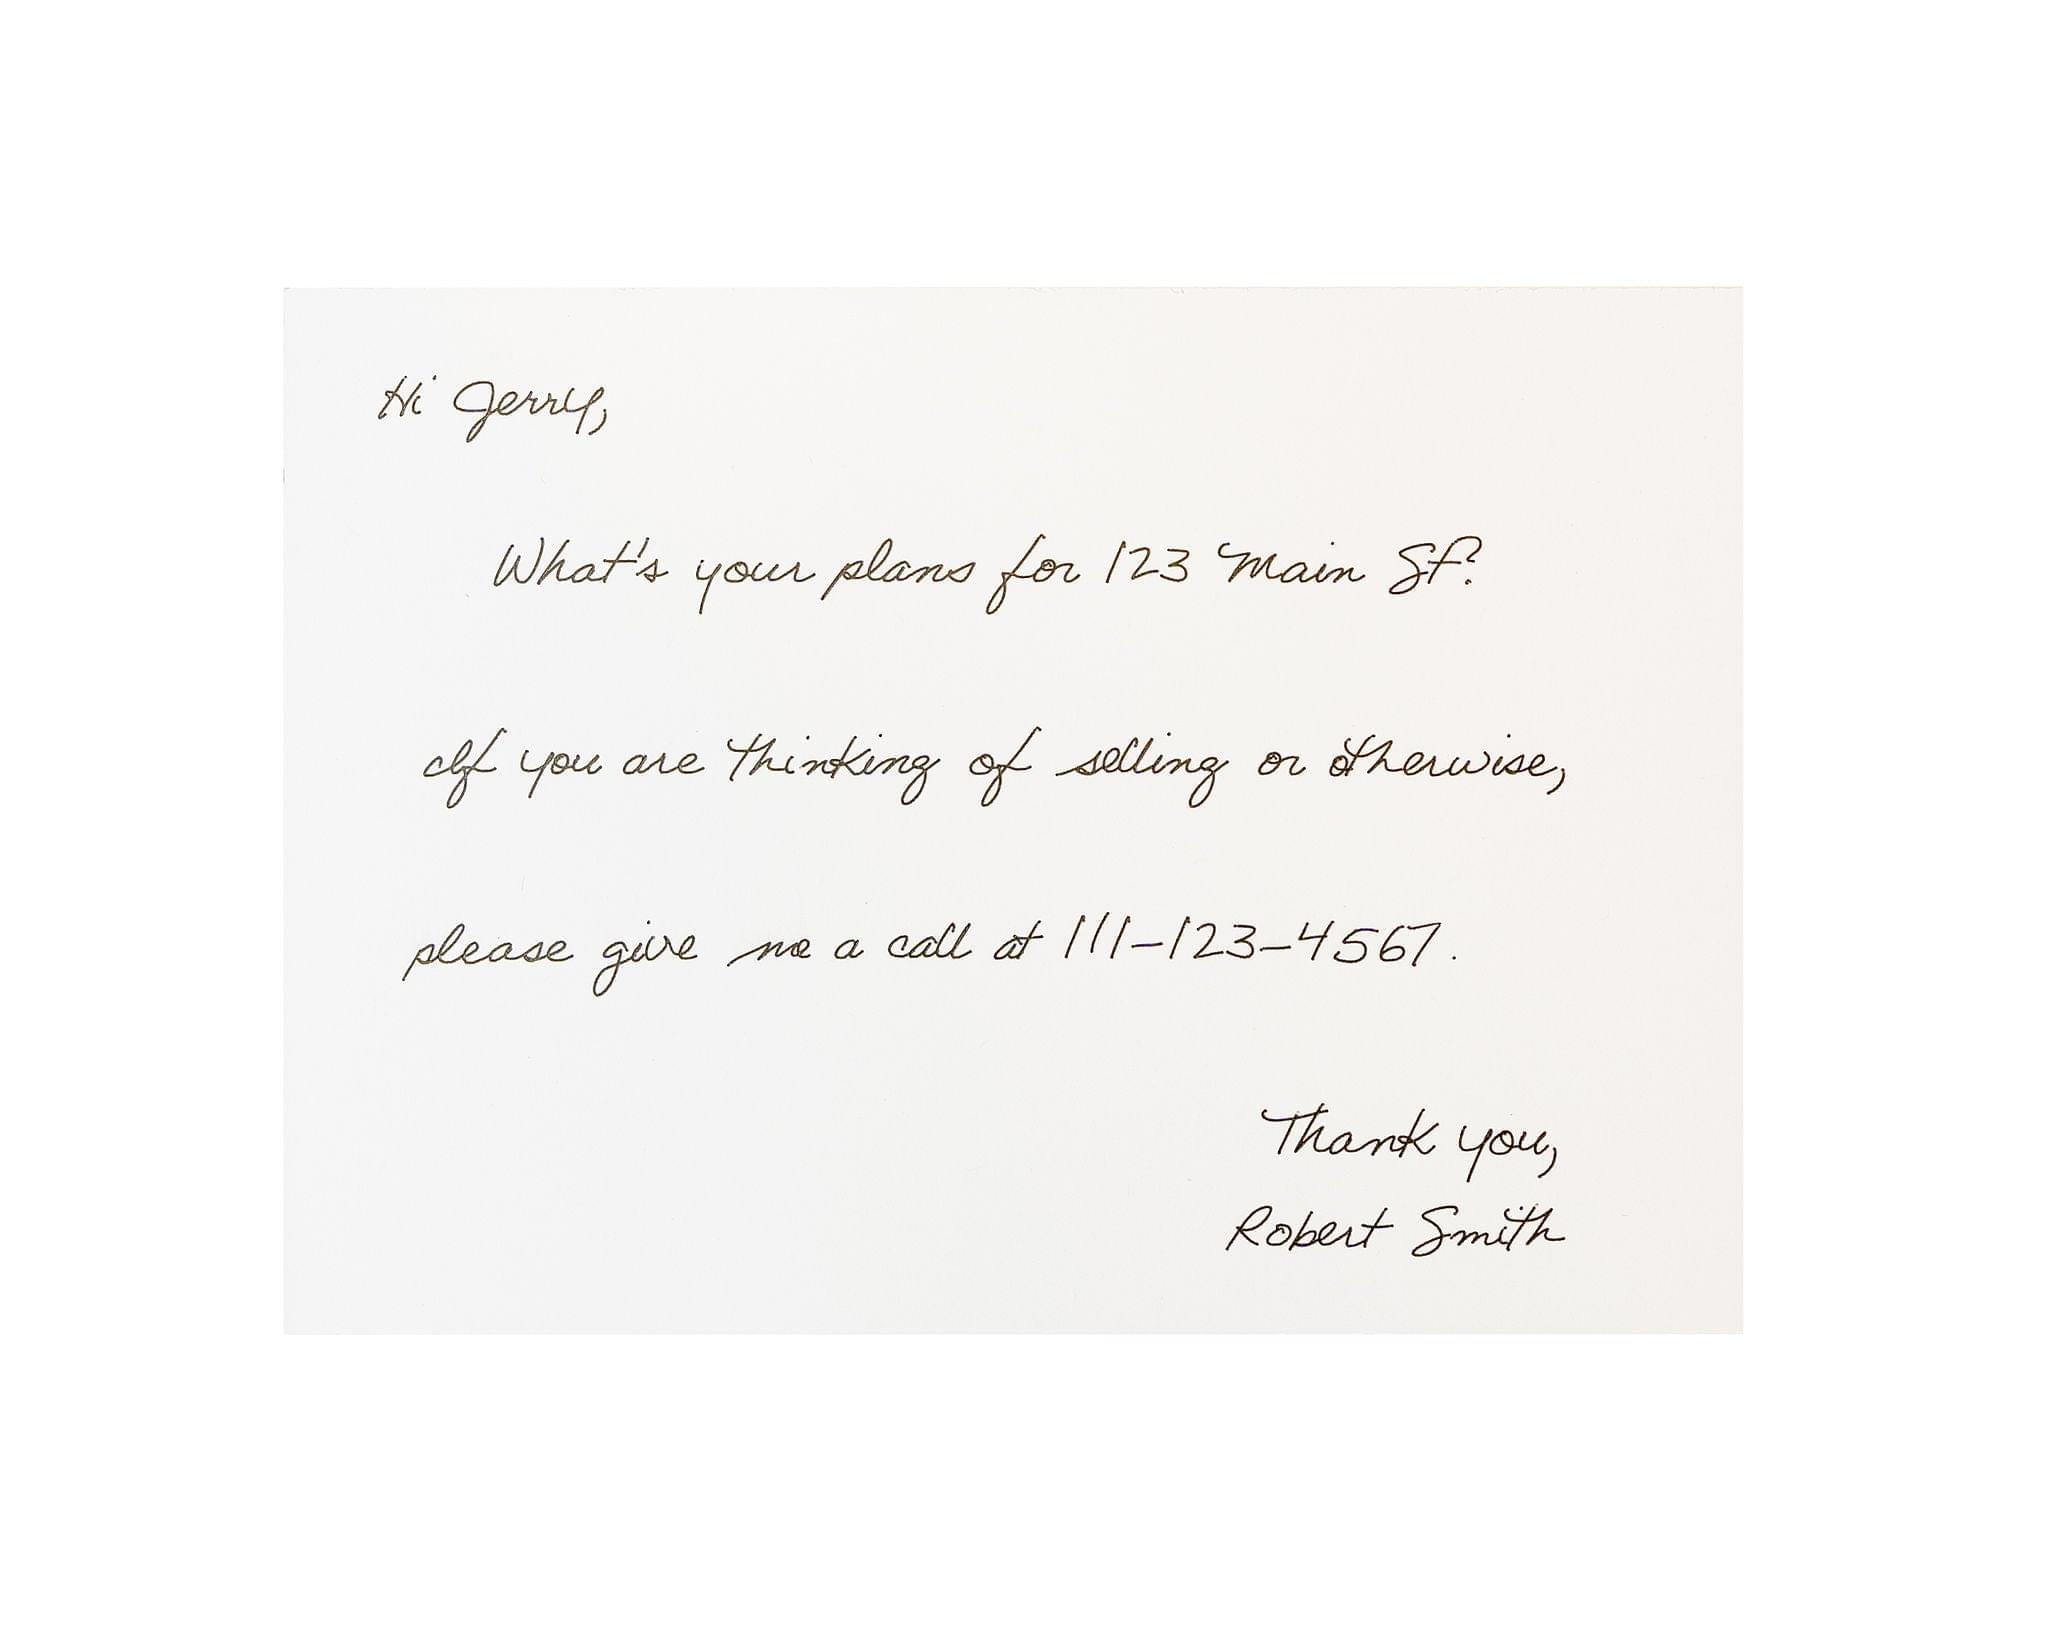 Hi Jerry,
What's your plans for 123 Main St?
If you are thinking of selling or otherwise,
please give me a call at 111-123-4567.
Thank you,
Robert Smith